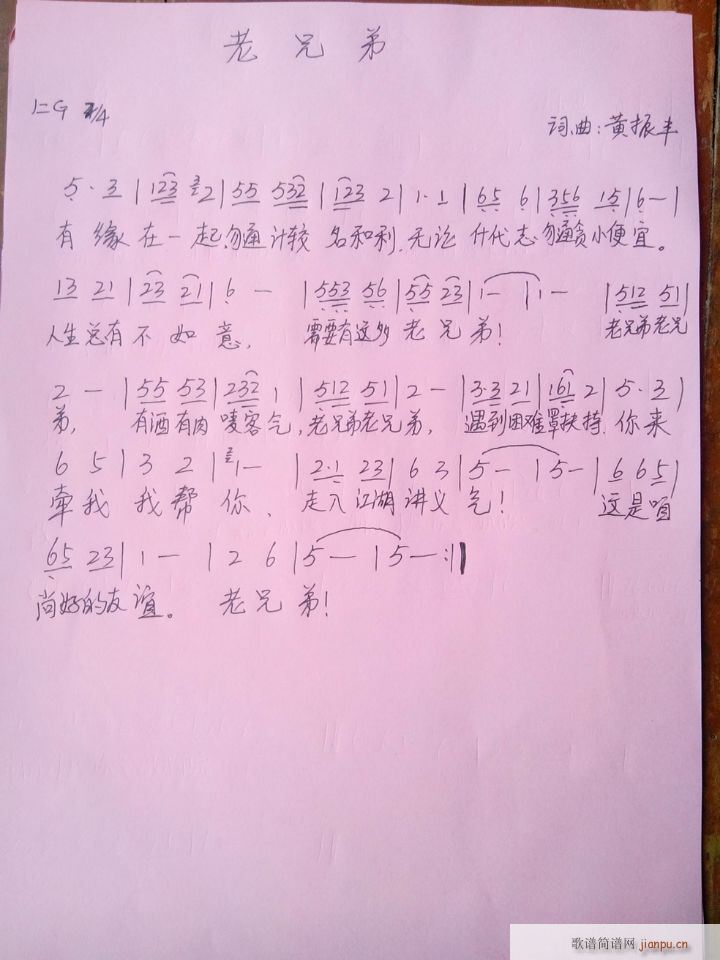 老兄弟
1=G 2/4
词.曲:黄振丰
5· 3 | 123 32 | 55 532 | 123 2 | 1· 1 | 65 6 | 356 15 | 6 — |
有缘在一起,勿通计较名和利.无论什代志勿通贪小便宜。
13 21 | 23 21 | 6 — | 553 56 | 55 23 | 1 — | 1 — | 512 51 |
人生总有不如意, 需要有这多老兄弟! 老兄弟老兄
2 — | 55 53 | 232 1 | 512 51 | 2 — | 3·3 21 | 161 2 | 5· 3 |
弟, 有酒有肉唛客气,老兄弟老兄弟, 遇到困难罩扶持.你来
6 5 | 3 2 | 21 — | 2·1 23 | 6 3 | 5 — | 5 — | 6 65 |
牵我我帮你、走入江湖讲义气! 这是咱
65 23 | 1 — | 2 6 | 5 — | 5 — :|
尚好的友谊。老兄弟!
歌谱简谱网
jianpu.cn